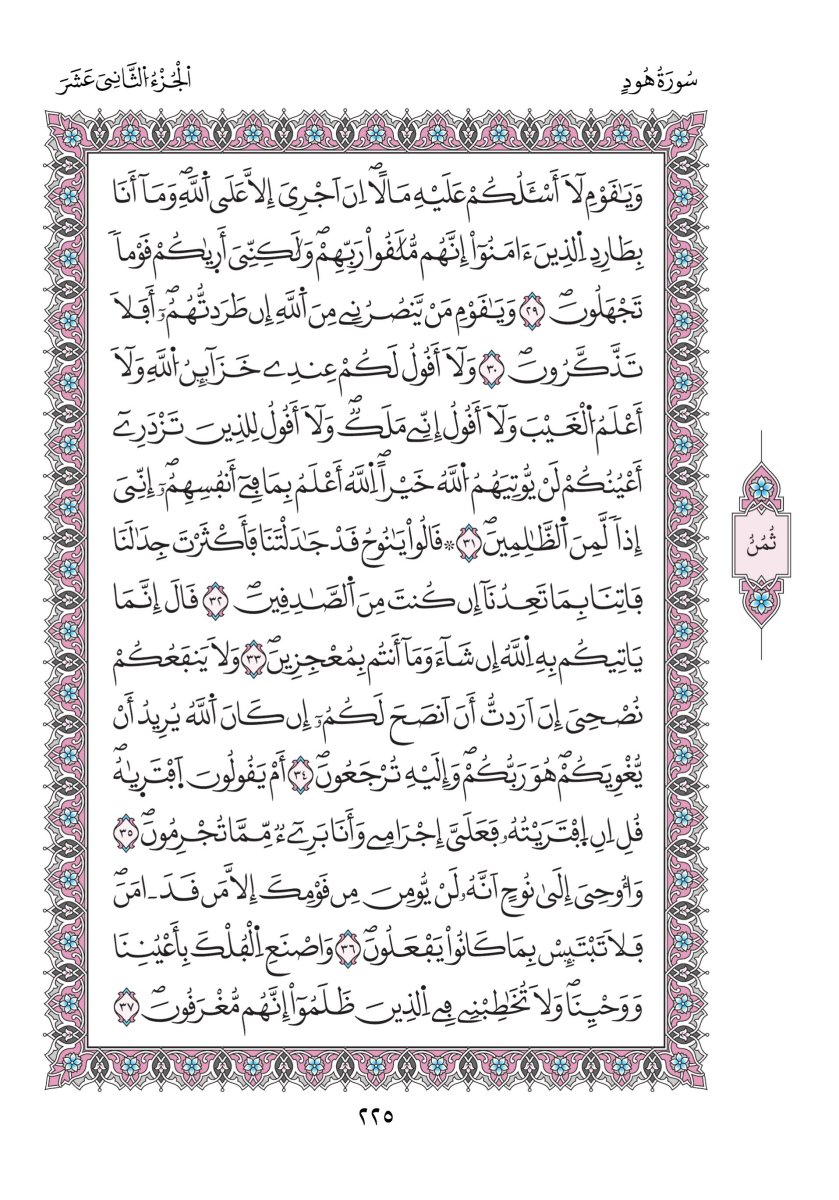 سُورَةُ هُودٍ
اَ۬لْجُزْءُ اُ۬لثَّانِيَ عَشَرَ
وَيَٰقَوْمِ لَآ أَسْـَٔلُكُمْ عَلَيْهِ مَالاًۖ اِنَ اَجْرِيَ إِلَّا عَلَى اَ۬للَّهِۖ وَمَآ أَنَا
بِطَارِدِ اِ۬لذِينَ ءَامَنُوٓاْۖ إِنَّهُم مُّلَٰقُواْ رَبِّهِمْۖ وَلَٰكِنِّيَ أَر۪يٰكُمْ قَوْماٗ
تَجْهَلُونَۖ ٢٩ وَيَٰقَوْمِ مَنْ يَّنصُرُنِي مِنَ اَ۬للَّهِ إِن طَرَدتُّهُمُۥٓۖ أَفَلَا
تَذَّكَّرُونَۖ ٣٠ وَلَآ أَقُولُ لَكُمْ عِندِي خَزَآئِنُ اُ۬للَّهِ وَلَآ
أَعْلَمُ اُ۬لْغَيْبَ وَلَآ أَقُولُ إِنِّي مَلَكٞۖ وَلَآ أَقُولُ لِلذِينَ تَزْدَرِيٓ
أَعْيُنُكُمْ لَنْ يُّوتِيَهُمُ اُ۬للَّهُ خَيْراًۖ اِ۬للَّهُ أَعْلَمُ بِمَا فِيٓ أَنفُسِهِمُۥٓۖ إِنِّيَ
إِذاٗ لَّمِنَ اَ۬لظَّٰلِمِينَۖ ٣١ ۞ قَالُواْ يَٰنُوحُ قَدْ جَٰدَلْتَنَا فَأَكْثَرْتَ جِدَٰلَنَا
فَاتِنَا بِمَا تَعِدُنَآ إِن كُنتَ مِنَ اَ۬لصَّٰدِقِينَۖ ٣٢ قَالَ إِنَّمَا
يَاتِيكُم بِهِ اِ۬للَّهُ إِن شَآءَ وَمَآ أَنتُم بِمُعْجِزِينَۖ ٣٣ وَلَا يَنفَعُكُمْ
نُصْحِيَ إِنَ اَرَدتُّ أَنَ اَنصَحَ لَكُمُۥٓ إِن كَانَ اَ۬للَّهُ يُرِيدُ أَنْ
يُّغْوِيَكُمْۖ هُوَ رَبُّكُمْۖ وَإِلَيْهِ تُرْجَعُونَۖ ٣٤ أَمْ يَقُولُونَ اَ۪فْتَر۪يٰهُۖ
قُلِ اِنِ اِ۪فْتَرَيْتُهُۥ فَعَلَيَّ إِجْرَامِي وَأَنَا بَرِيٓءٞ مِّمَّا تُجْرِمُونَۖ ٣٥
وَأُوحِيَ إِلَىٰ نُوحٍ اَنَّهُۥ لَنْ يُّومِنَ مِن قَوْمِكَ إِلَّا مَن قَدَ اٰمَنَۖ
فَلَا تَبْتَئِسْ بِمَا كَانُواْ يَفْعَلُونَۖ ٣٦ وَاصْنَعِ اِ۬لْفُلْكَ بِأَعْيُنِنَا
وَوَحْيِنَاۖ وَلَا تُخَٰطِبْنِي فِي اِ۬لذِينَ ظَلَمُوٓاْ إِنَّهُم مُّغْرَقُونَۖ ٣٧
ثُمُنُ
٢٢٥